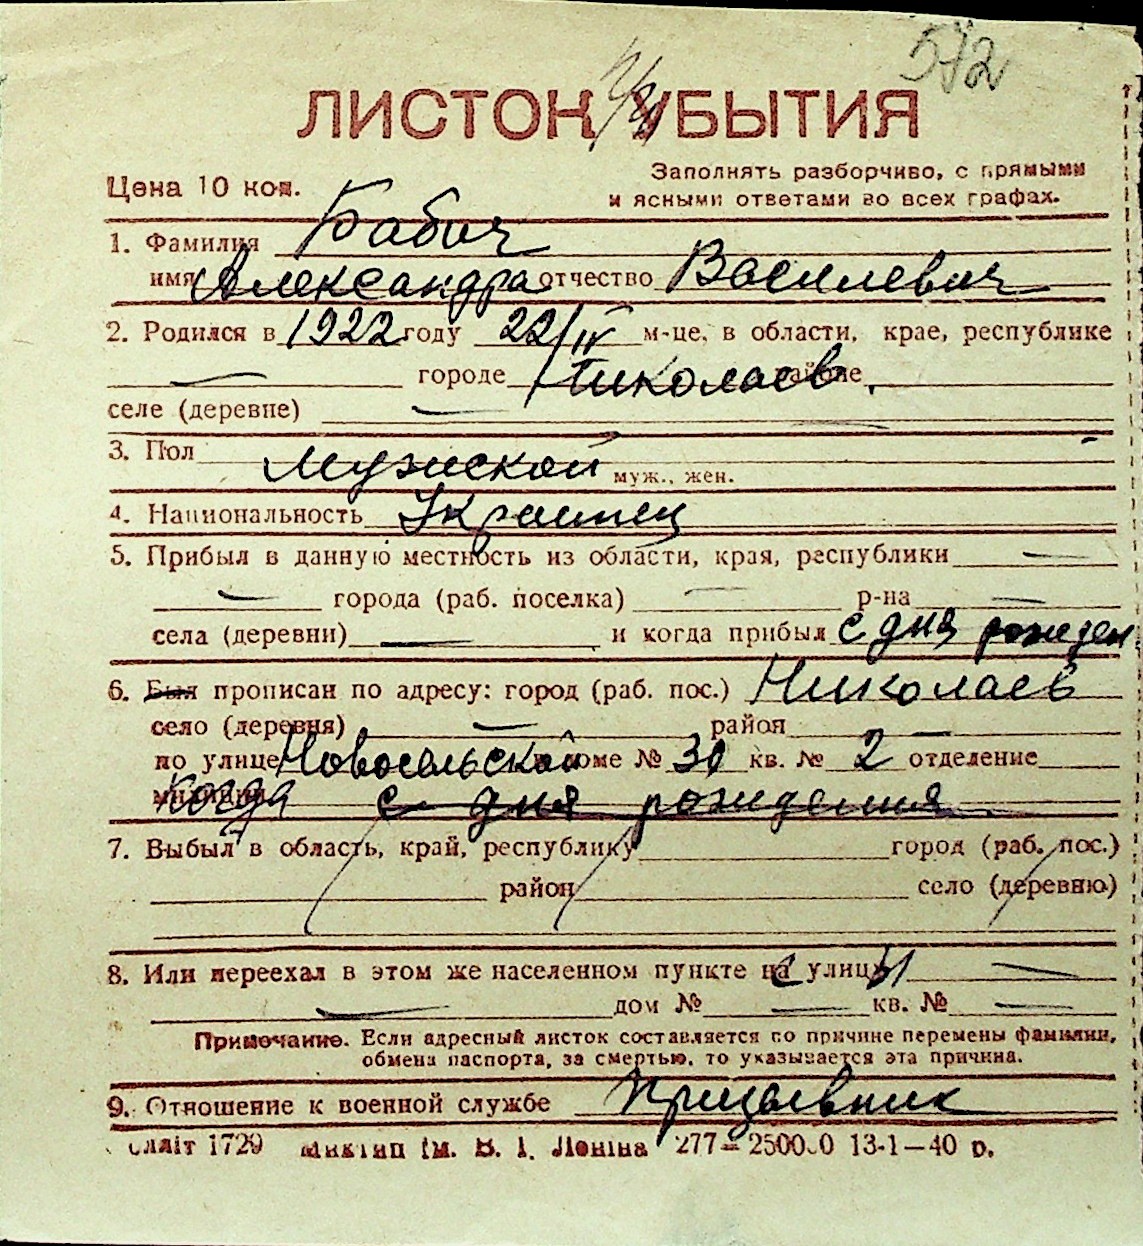 572
ЛИСТОК УБЫТИЯ
Цена 10 коп.
Заполнять разборчиво, с прямыми
и ясными ответами во всех графах.
1. Фамилия Бабич
имя Александра отчество Василевич
2. Родился в 1922 году 22/IV м-це, в области, крае, республике
— городе Николаев районе
селе (деревне) —
3. Пол мужской муж., жен.
4. Национальность Украинец
5. Прибыл в данную местность из области, края, республики —
— города (раб. поселка) — р-на —
села (деревни) — и когда прибыл с дня рожден.
6. Был прописан по адресу: город (раб. пос.) Николаев
село (деревня) — район —
по улице Новосельской в доме № 30 кв. № 2 отделение
когда с дня рождения
7. Выбыл в область, край, республику город (раб. пос.)
район село (деревню)
8. Или переехал в этом же населенном пункте с улицы —
— дом № — кв. № —
Примечание. Если адресный листок составляется по причине перемены фамилии,
обмена паспорта, за смертью, то указывается эта причина.
9. Отношение к военной службе призывник
1729 ім. В. І. Леніна 277—250000 13-1—40 р.